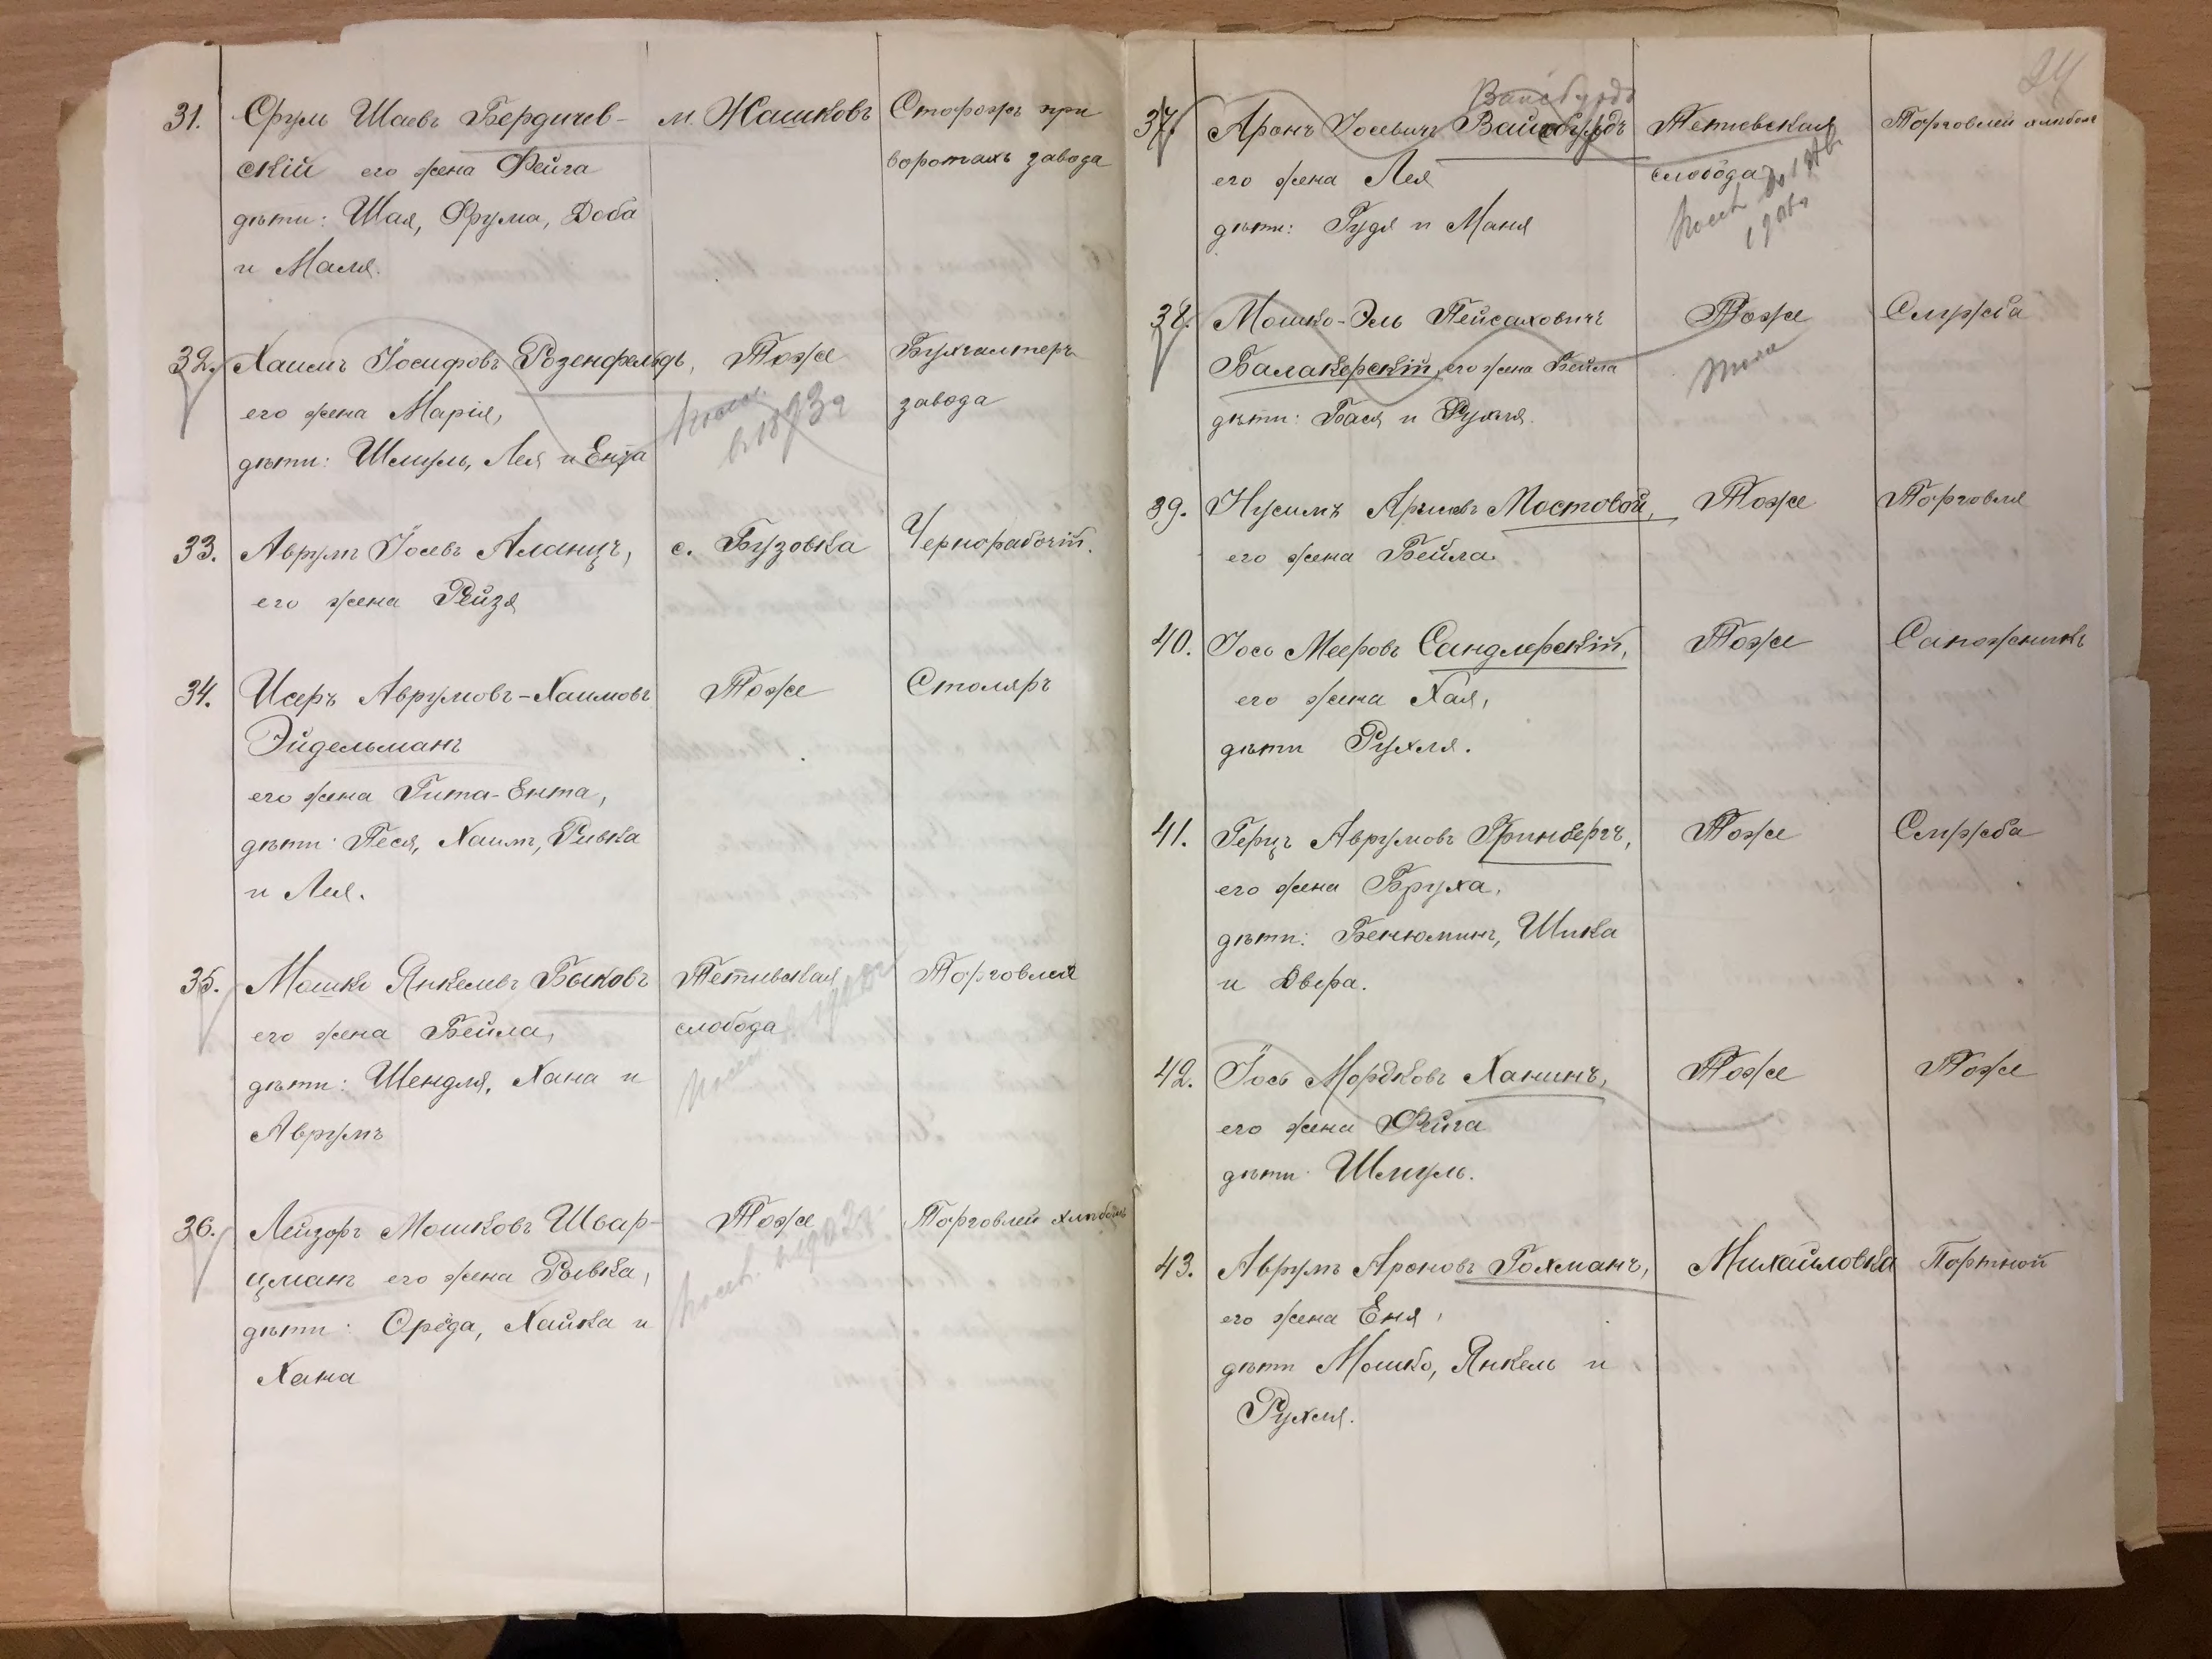 31. Срулъ Шаевъ Бердичев- м. Жашковъ Сторожъ при
скій его жена Фейга воротахъ завода
дѣти: Шая, Фрума, Доба
и Маля.
32. Хаимъ Іосифовъ Розенфельдъ, Тоже Бухгалтеръ
его жена Марія, завода
в 1893 г
дѣти: Шмуль, Лея и Ента
33. Аврумъ Іосевъ Аланцъ, с. Бузовка Чернорабочій.
его жена Рейзя
34. Исеръ Аврумовъ-Хаимовъ Тоже Столяръ
Эйдельманъ
его жена Гита-Ента,
дѣти: Песя, Хаимъ, Ривка
и Лея.
35. Мошко Янкелевъ Быковъ Тетіевская Торговля
его жена Бейла, слобода
дѣти: Шендля, Хана и
Аврумъ
36. Лейзоръ Мошковъ Швар- Тоже Торговля хлѣбомъ
цманъ его жена Рывка,
дѣти: Орёда, Хайка и
Хана
24
Вайсбурдъ
37. Аронъ Іосевичъ Вайсбурдъ Тетіевская Торговлей хлѣбом
его жена Лея слобода
дѣти: Гудя и Маня
38. Мошко-Эль Пейсаховичъ Тоже Служба
Балакерскій, его жена Бейла
дѣти: Бася и Рухля.
39. Нусимъ Арievъ Мостовой, Тоже Торговля
его жена Бейла.
40. Іось Мееровъ Сандлерскій, Тоже Сапожникъ
его жена Хая,
дѣти Рухля.
41. Герцъ Аврумовъ Гринбергъ, Тоже Служба
его жена Бруха,
дѣти: Бенюминъ, Шика
и Двера.
42. Іось Мордковъ Ханинъ, Тоже Тоже
его жена Фейга
дѣти: Шмуль.
43. Аврумъ Ароновъ Гохманъ, Михайловка Портной
его жена Еня,
дѣти Мошко, Янкель и
Рухля.